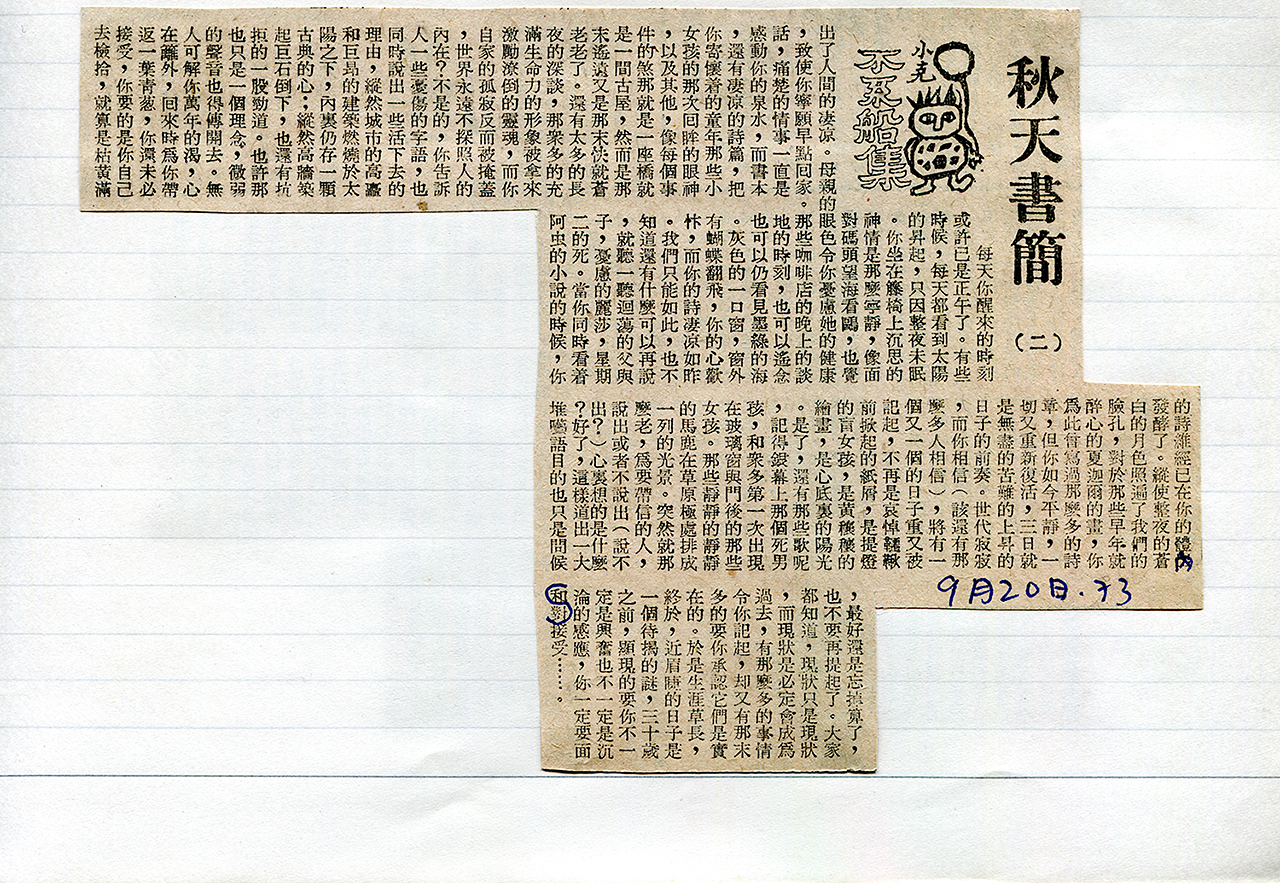 秋天書簡
(二)
小克
不系船集
每天你醒來的時刻
或許已是正午了。有些
時候,每天都看到太陽
的昇起,只因整夜未眠
。你坐在籐椅上沉思的
神情是那麼寧靜,像面
對碼頭望海看鷗,也覺
出了人間的凄凉。母親的
眼色令你憂慮她的健康
,致使你寧願早點回家。
那些咖啡店的晚上的談
話,痛楚的情事一直是
感動你的泉水,而書本
,還有凄凉的詩篇,把
你寄懷着的童年那些小
女孩的那次回眸的眼神
,以及其他,像每個事
件的煞那就是一座橋就
是一間古屋,然而是那
末遙遠又是那末快就蒼
老老了。還有太多的長
夜的深談,那衆多的充
滿生命力的形象被拿來
激勵潦倒的靈魂,而你
自家的孤寂反而被掩蓋
,世界永遠不探照人的
內在?不是的,你告訴
人一些憂傷的字語,也
同時說出一些活下去的
理由,縱然城市的高矗
和巨昂的建築燃燒於太
陽之下,內裏仍存一顆
古典的心;縱然高牆築
起巨石倒下,也還有抗
拒的一股勁道。也許那
也只是一個理念,微弱
的聲音也得傳開去。無
人可解你萬年的渴,心
在離外,回來時爲你帶
返一葉靑葱,你還未必
接受,你要的是你自己
去檢拾,就算是枯黃滿
地的時刻,也可以遙念
也可以仍看見墨綠的海
。灰色的一口窗,窗外
有蝴蝶翻飛,你的心歡
怵,而你的詩凄凉如昨
。我們只能如此,也不
知道還有什麼可以再說
,就聽一聽迴蕩的父與
子,憂慮的麗莎,星期
二的死。當你同時看着
阿虫的小說的時候,你
的詩雖經已在你的體內
發酵了。縱使整夜的蒼
白的月色照遍了我們的
臉孔,對於那些早年就
醉心的夏迦爾的畫,你
爲此會寫過那麼多的詩
章,但你如今平靜,一
切又重新復活,三日就
是無盡的苦難的上昇的
日子的前奏。世代寂寂
,而你相信(該還有那
麼多人相信),將有一
個又一個的日子重又被
記起,不再是哀悼鞦韆
前掀起的紙屑,是提燈
的盲女孩,是黃穠穠的
繪畫,是心底裏的陽光
。是了,還有那些歌呢
,記得銀幕上那個死男
孩,和衆多第一次出現
在玻璃窗與門後的那些
女孩。那些靜靜的靜靜
的馬鹿在草原極處排成
一列的光景。突然就那
麼老,爲要帶信的人,
說出或者不說出(說不
出?)心裏想的是什麼
?好了,這樣道出一大
堆囈語目的也只是問候
,最好還是忘掉算了,
也不要再提起了。大家
都知道,現狀只是現狀
,而現狀是必定會成爲
過去,有那麼多的事情
令你記起,却又有那末
多的要你承認它們是實
在的。於是生涯草長,
終於,近眉睫的日子是
一個待揭的謎,三十歲
之前,顯現的要你不一
定是興奮也不一定是沉
淪的感應,你一定要面
和對接受……。
9月20日.73